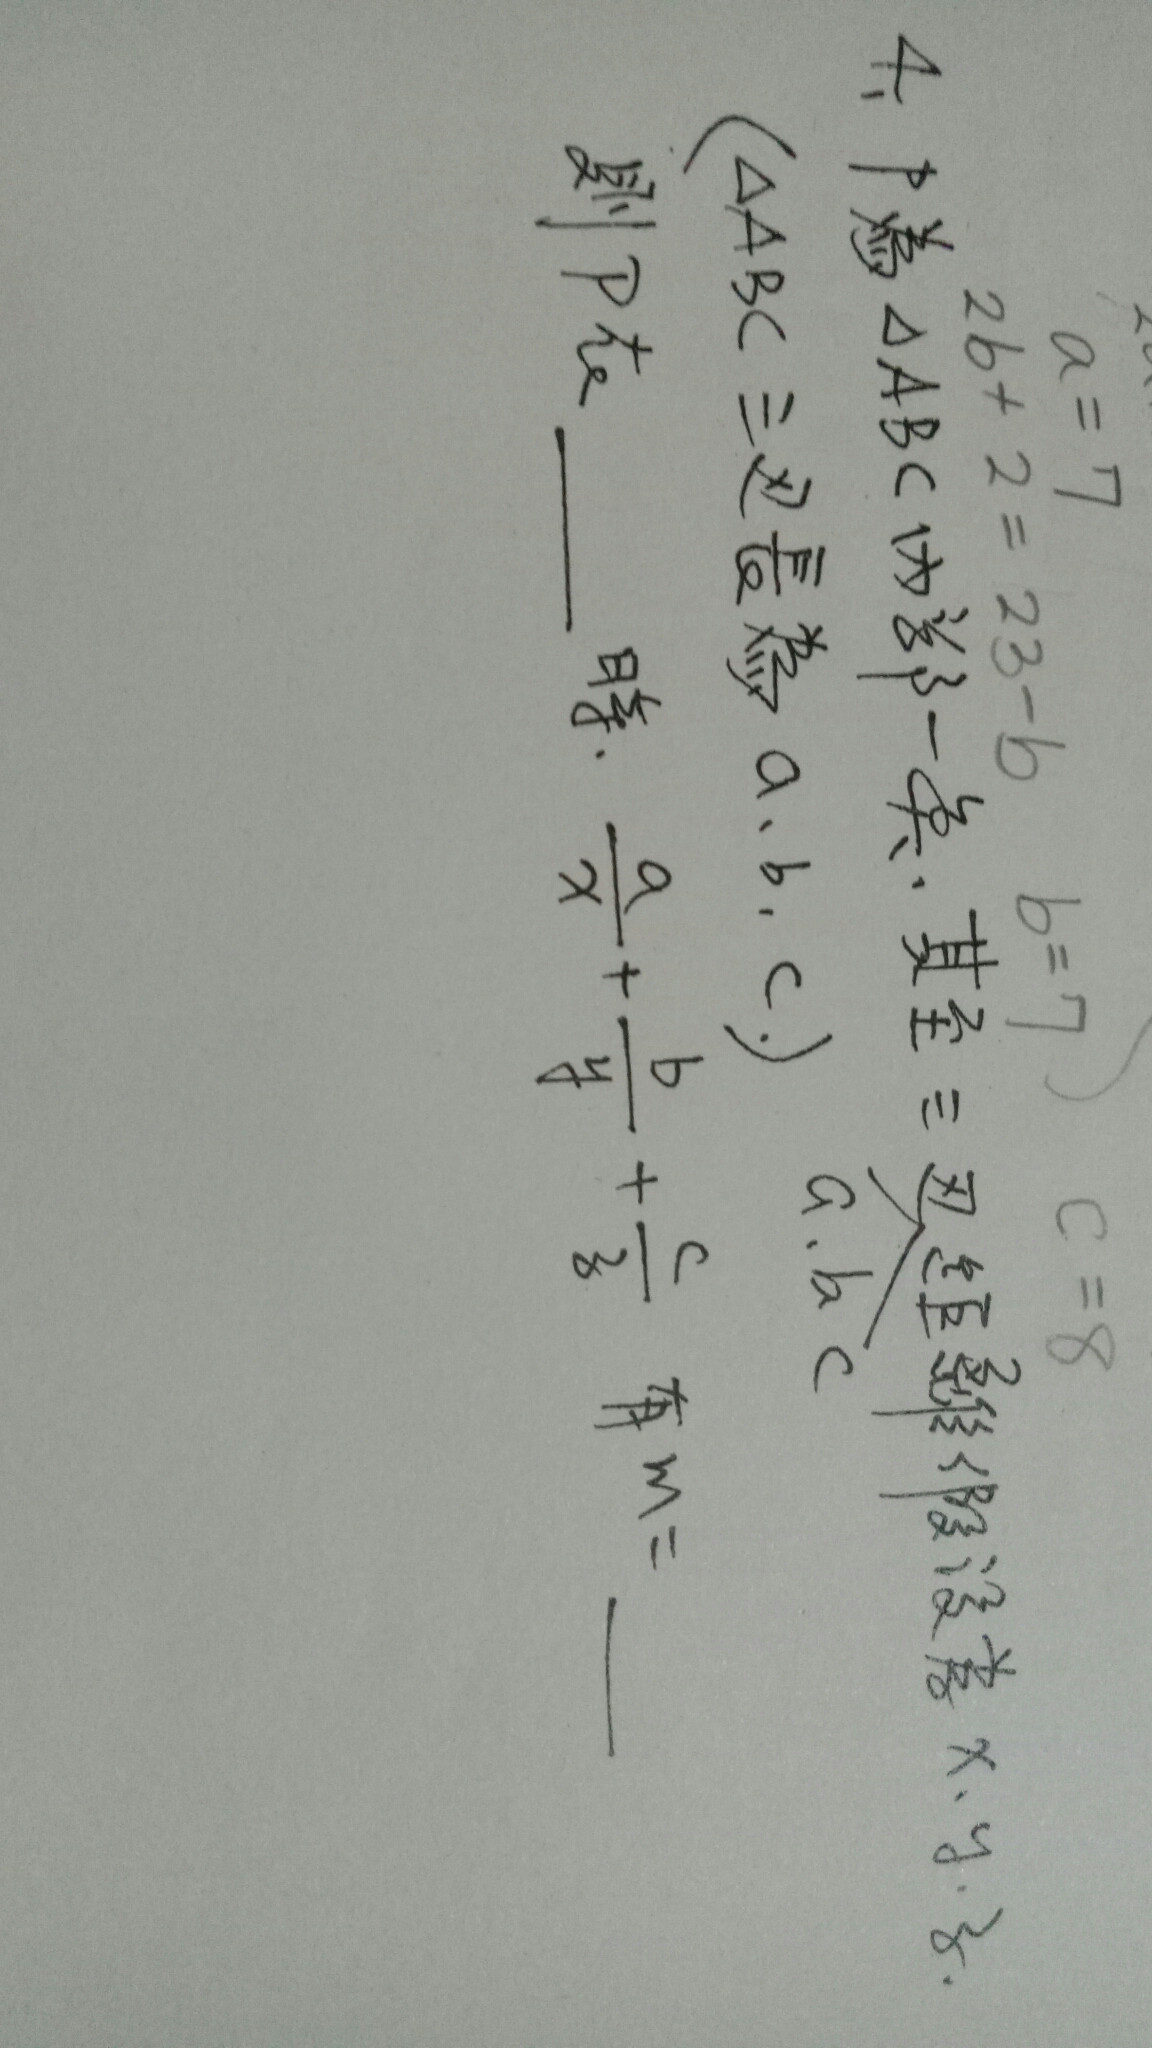 a = 7
2b + 2 = 23 - b   b = 7   c = 8
4. P為△ABC內部一點. 其至三边距離分別設為 x. y. z.
a. b c
(△ABC 三边長為 a. b. c.)
則P在____時. a/x + b/y + c/z 有 m = ____